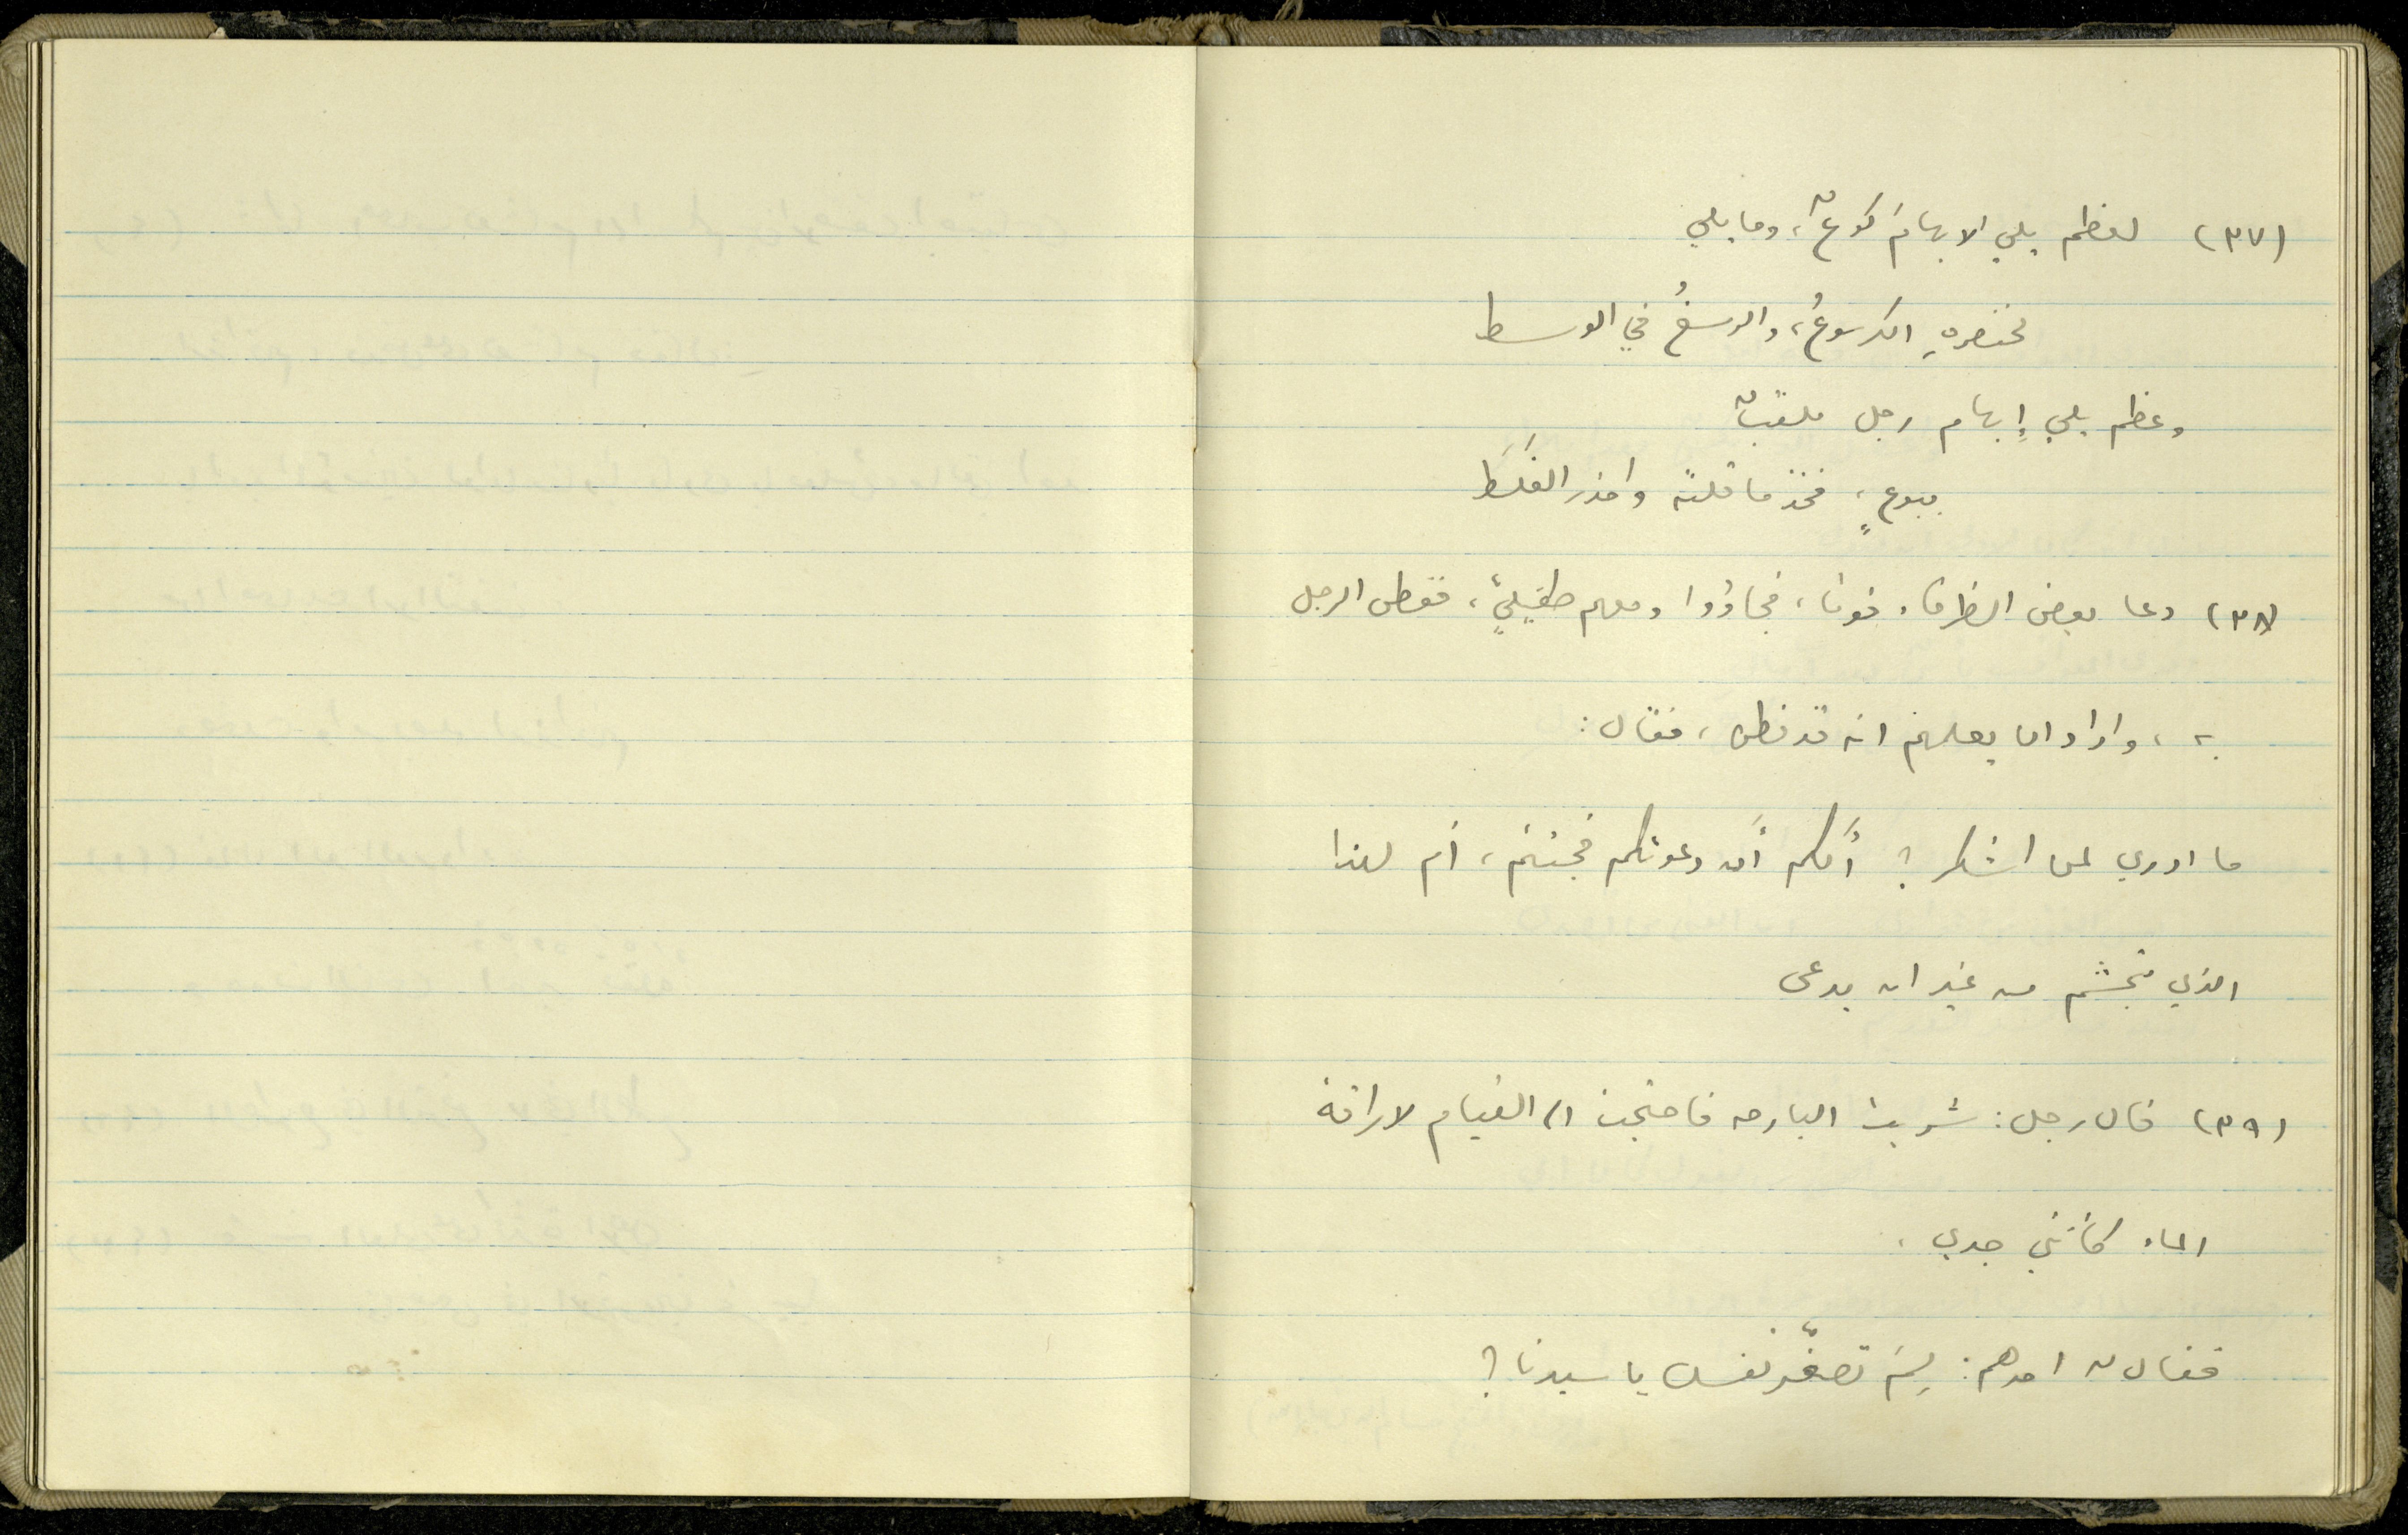 (٣٧) لعظم يلي الابهامَ كوعٌ، وما يلي
لخنصرهِ الكرسوعُ، والرسغُ في الوسط
وعظم يلي إبهام رجل ملقبٌ
ببوعٍ، فخذ ما قلته واحذر الغَلَطَ
(٣٨) دعا بعض الظرفاء قوماً، فجاؤوا ومعهم طفيليٌّ، ففطن الرجل
به، واراد ان يعلمهم انه قد فطن، فقال:
ما ادري لمن اشكر؟ أَلكم أَن دعوتكم فجئتم، أم لهذا
الذي تجشّم من غير ان يدعى
(٣٩) قال رجل: شربت البارحه فاحتجت الى القيام لاراقة
الماء كأنني جدي.
فقال له احدهم: لِمَ تصغّر نفسك يا سيدنا؟